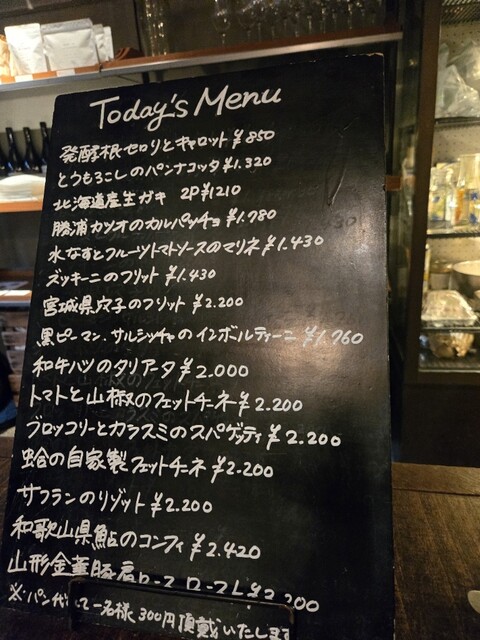 Today's Menu
発酵根セロリとキャロット ¥850
とうもろこしのパンナコッタ ¥1.320
北海道産生ガキ 2P¥1210
勝浦カツオのカルパッチョ ¥1.780
水なすとフルーツトマトソースのマリネ ¥1.430
ズッキーニのフリット ¥1.430
宮城県穴子のフリット ¥2.200
黒ピーマン、サルシッチャのインボルティーニ ¥1.760
和牛ハツのタリアータ ¥2.000
トマトと山椒のフェットチーネ ¥2.200
ブロッコリーとカラスミのスパゲッティ ¥2.200
蛤の自家製フェットチーネ ¥2.200
サフランのリゾット ¥2.200
和歌山県鮎のコンフィ ¥2.420
山形金華豚肩ロース ロースト
※パン代 一名様 300円頂戴いたします